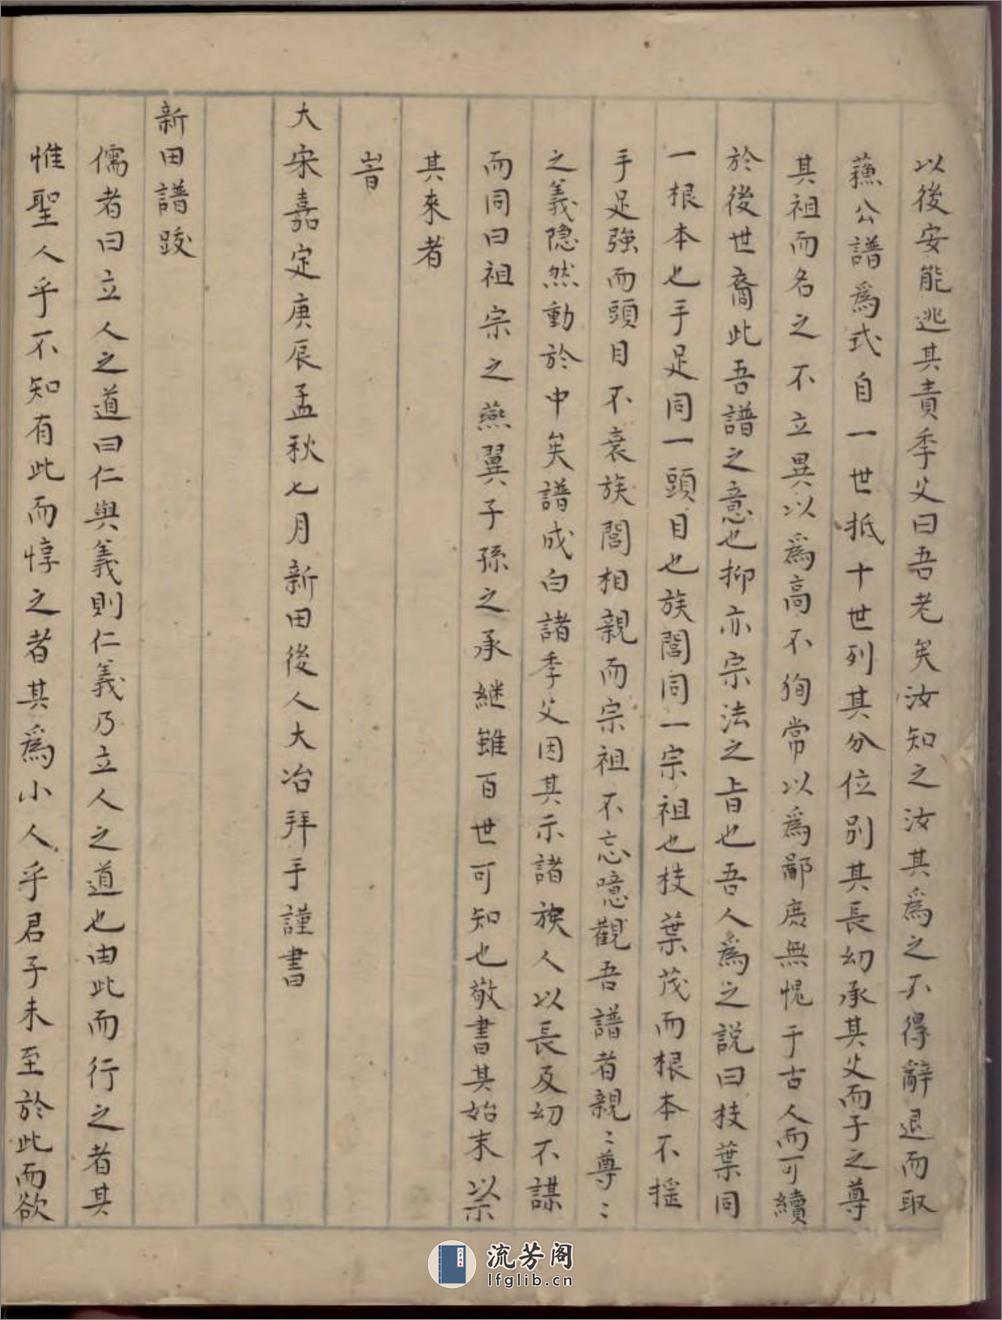 以後安能逃其責季父曰吾老矣汝知之汝其爲之不得辭退而取
蘓公譜爲式自一世抵十世列其分位别其長幼承其父而子之尊
其祖而名之不立異以爲高不狥常以爲鄙庶無愧于古人而可續
於後世裔此吾譜之意也抑亦宗法之旨也吾人爲之説曰枝葉同
一根本也手足同一頭目也族閭同一宗祖也枝葉茂而根本不揺
手足強而頭目不衰族閭相親而宗祖不忘噫觀吾譜者親〻尊〻
之義隠然動於中矣譜成白諸季父因其示諸族人以長及幼不謀
而同曰祖宗之燕翼子孫之承継雖百世可知也敬書其始末以示
其來者
旹
大宋嘉定庚辰孟秋七月新田後人大冶拜手謹書
新田譜跋
儒者曰立人之道曰仁與義則仁義乃立人之道也由此而行之者其
惟聖人乎不知有此而悖之者其爲小人乎君子未至於此而欲
流芳阁
lfglib.cn